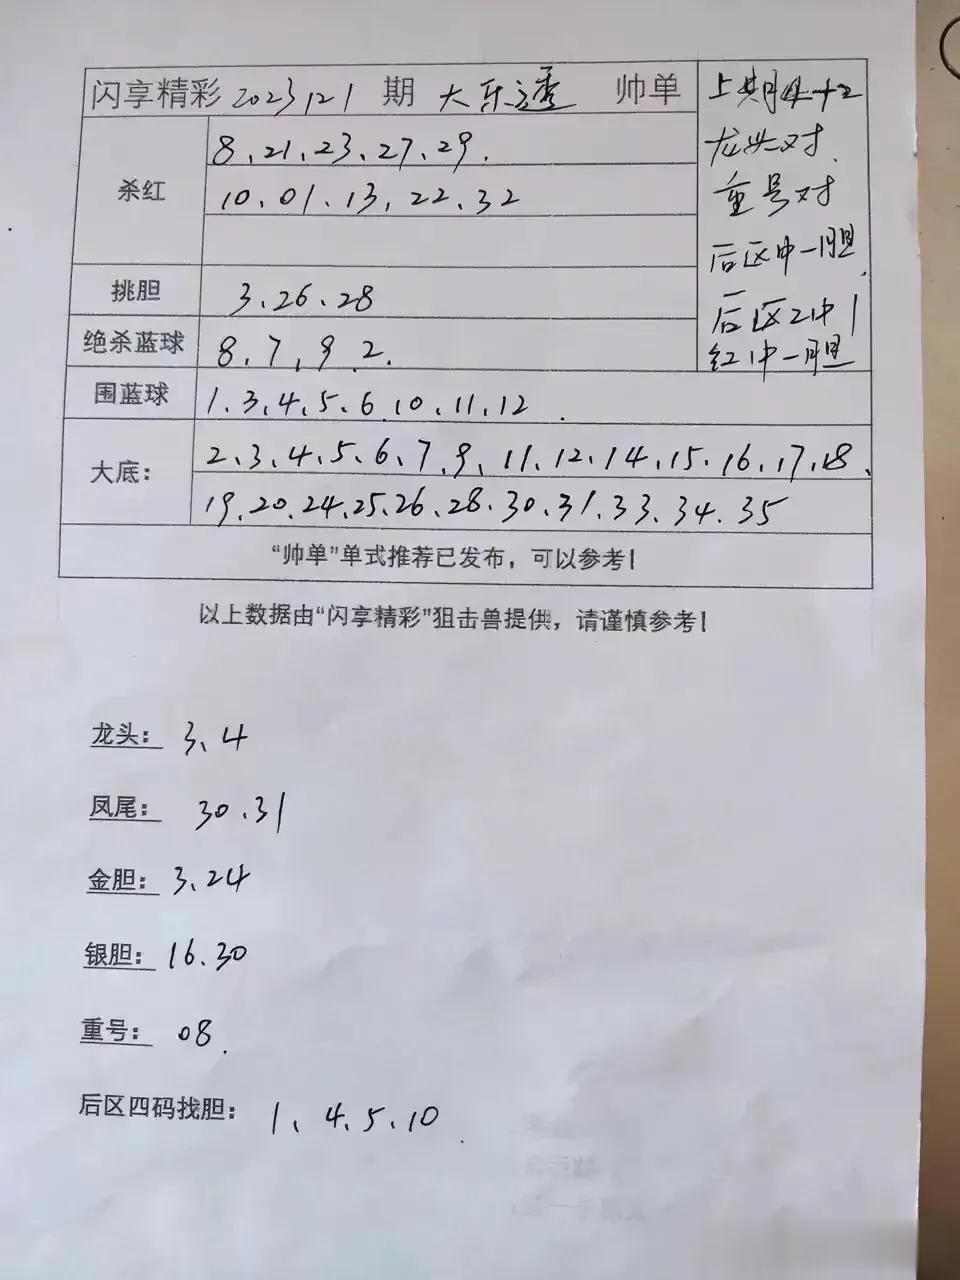 闪享精彩 2023121 期 大乐透 帅单
上期4+2
龙头对.
重号对
后区中一胆.
后区2中1
红中一胆
杀红
8、21、23、27、29.
10、01、13、22、32
挑胆 3、26、28
绝杀蓝球 8、7、9 2.
围蓝球 1、3、4、5、6 10、11、12 .
大底：
2、3、4、5、6、7、9、11、12、14、15、16、17、18、
19、20、24、25、26、28、30、31、33、34、35
“帅单”单式推荐已发布，可以参考！
以上数据由“闪享精彩”狙击兽提供，请谨慎参考！
龙头： 3、4
凤尾： 30、31
金胆： 3、24
银胆： 16、30
重号： 08.
后区四码找胆： 1、4、5、10 .